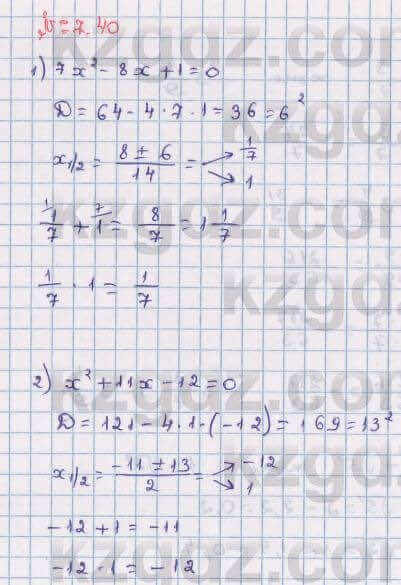 № 7.40
1) 7x² - 8x + 1 = 0
D = 64 - 4 · 7 · 1 = 36 = 6²
x₁/₂ = (8 ± 6)/14 = 1/7, 1
1/7 + 1 = 8/7 = 1 1/7
1/7 · 1 = 1/7
2) x² + 11x - 12 = 0
D = 121 - 4 · 1 · (-12) = 169 = 13²
x₁/₂ = (-11 ± 13)/2 = -12, 1
-12 + 1 = -11
-12 · 1 = -12
kzgdz.com